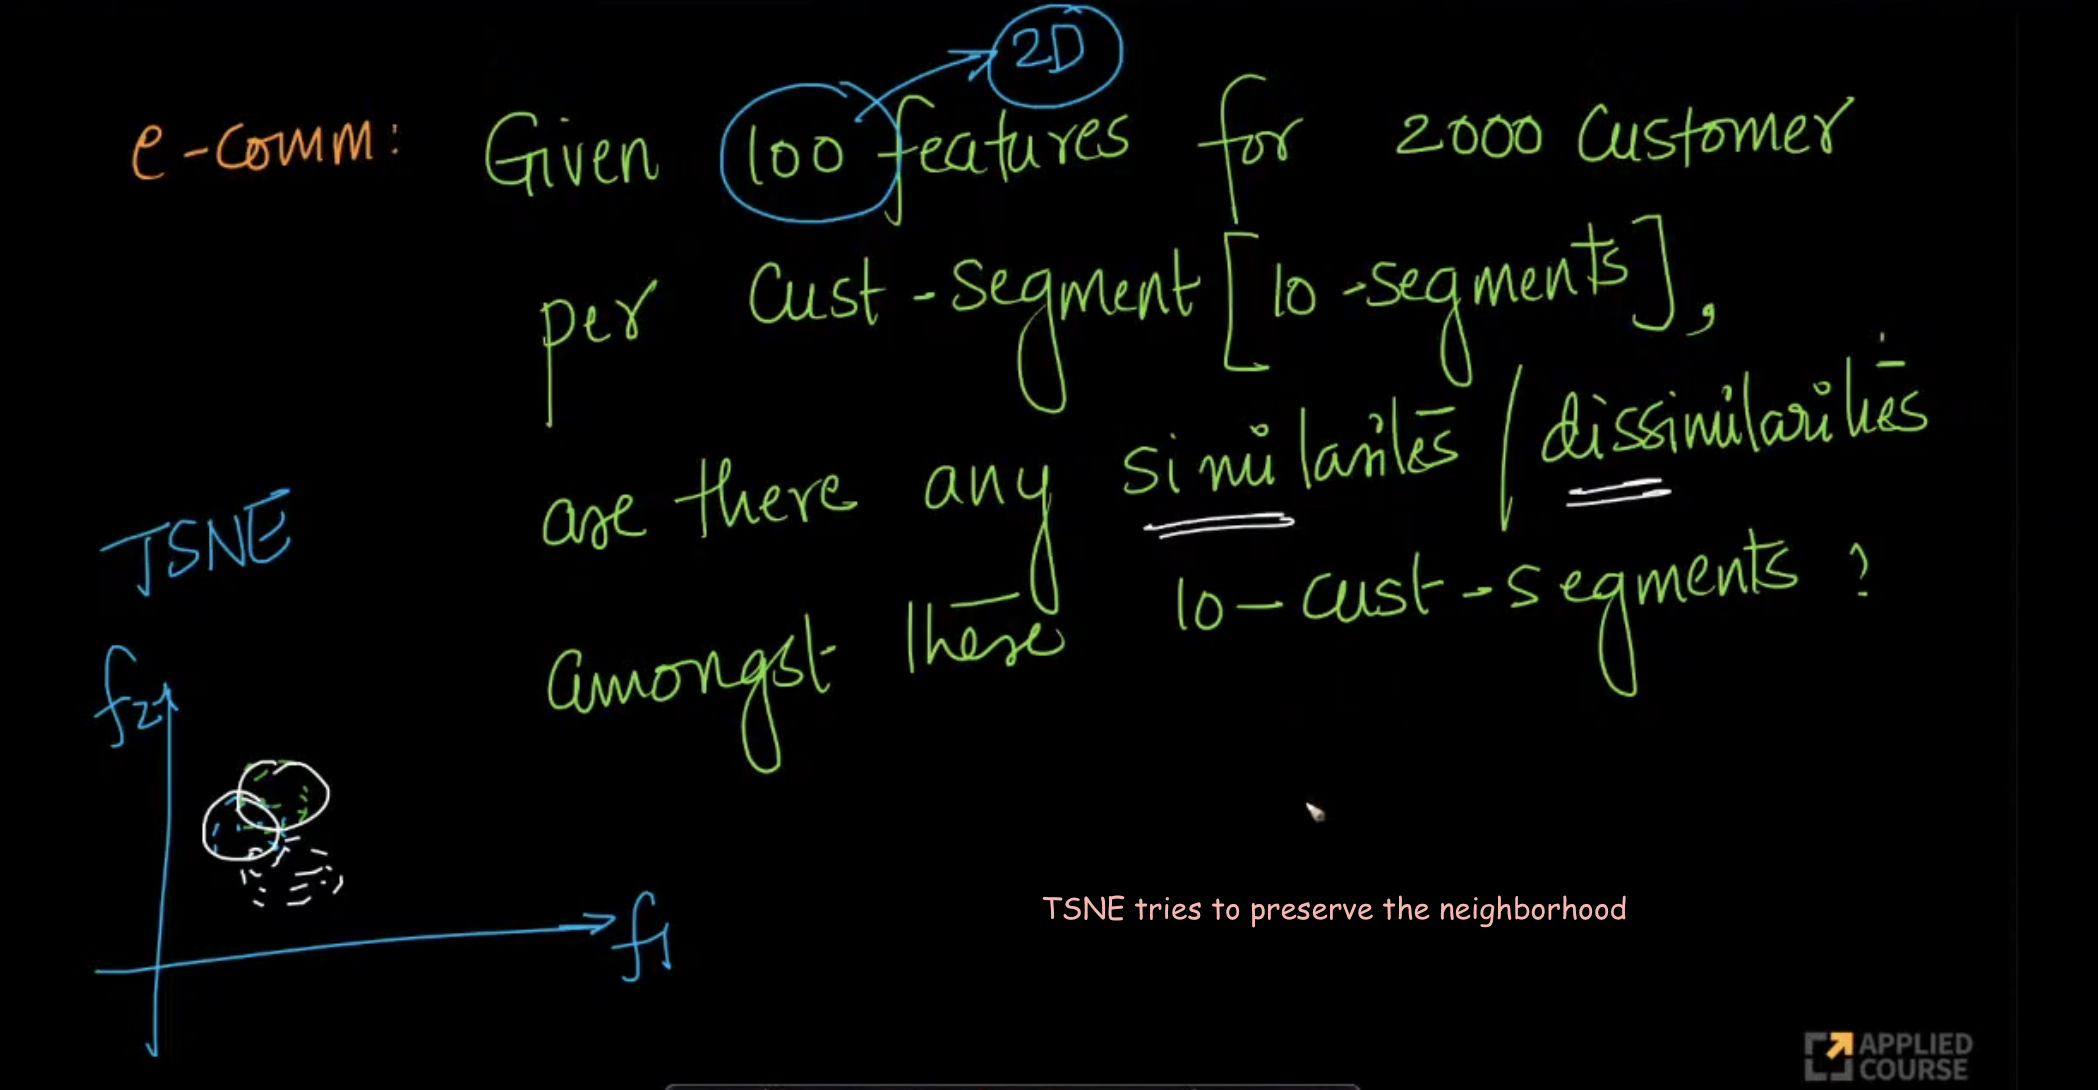 2D
e-comm: Given 100 features for 2000 Customer
per Cust-segment [10-segments],
are there any similarites / dissimilarities
amongst these 10-cust-segments ?
TSNE
f2
f1
TSNE tries to preserve the neighborhood
APPLIED
COURSE